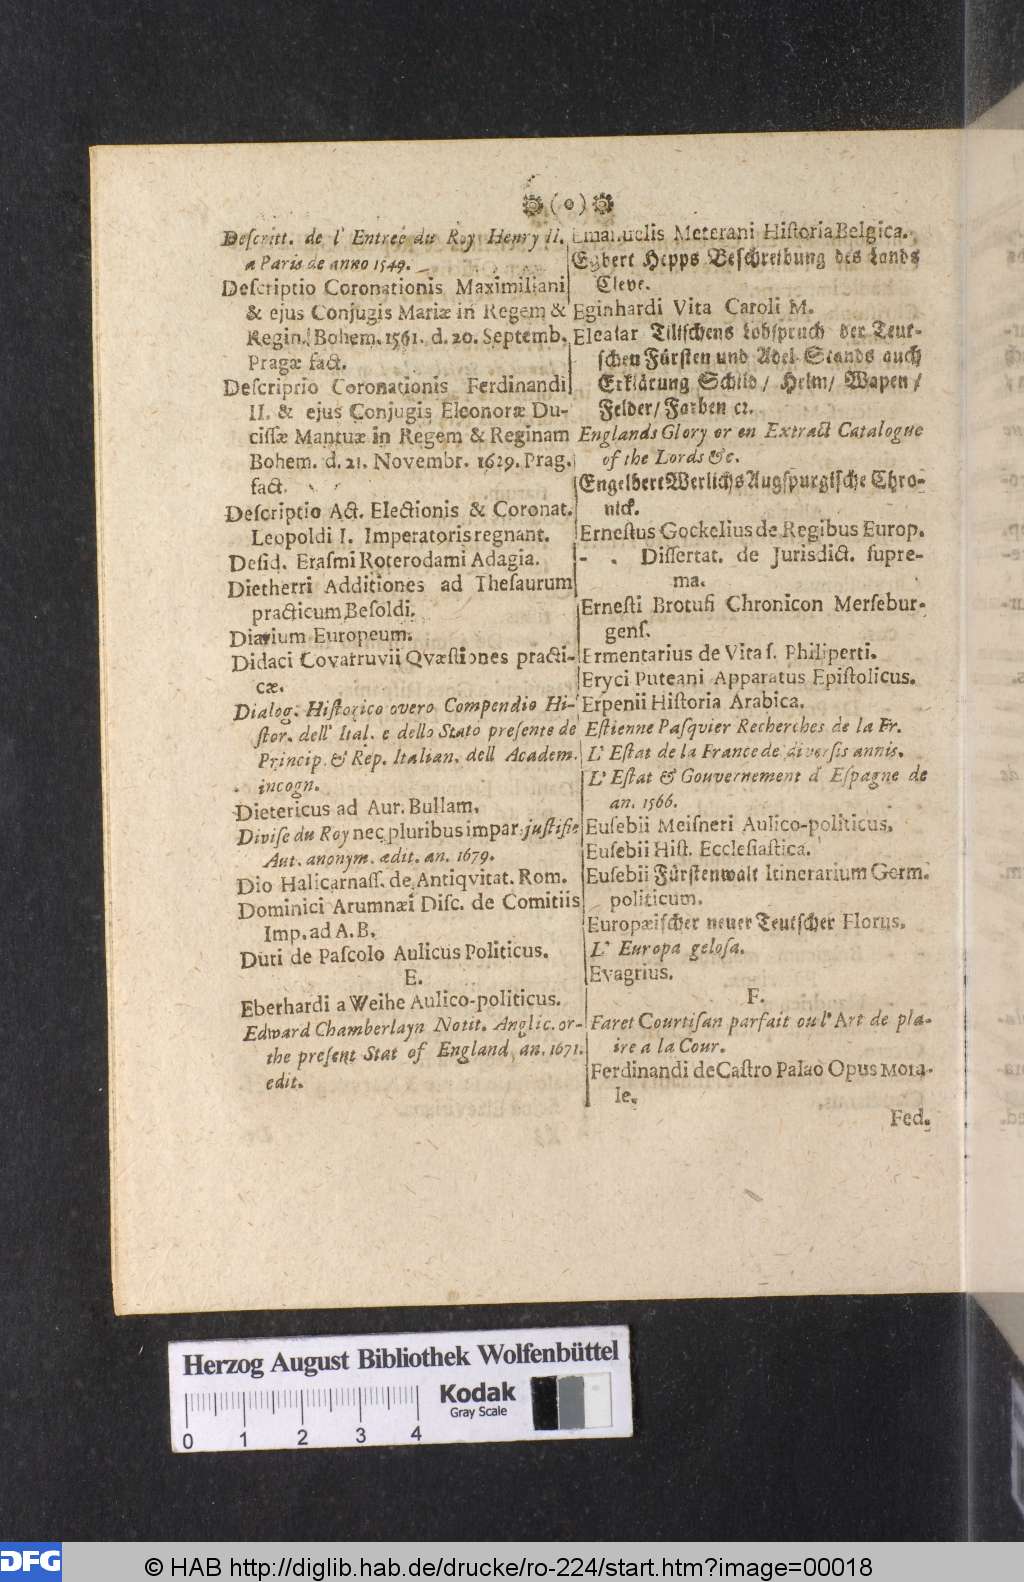 (o)
Descritt. de l' Entreé du Roy Henry II.
a Paris de anno 1549.
Descriptio Coronationis Maximiliani
& ejus Conjugis Mariæ in Regem &
Regin. Bohem. 1561. d. 20. Septemb.
Pragæ fact.
Descriprio Coronationis Ferdinandi
II. & ejus Conjugis Eleonoræ Du-
cissæ Mantuæ in Regem & Reginam
Bohem. d. 21. Novembr. 1629. Prag.
fact.
Descriptio Act. Electionis & Coronat.
Leopoldi I. Imperatoris regnant.
Desid. Erasmi Roterodami Adagia.
Dietherri Additiones ad Thesaurum
practicum Besoldi.
Diarium Europeum.
Didaci Covarruvii Qvæstiones practi-
cæ.
Dialog. Historico overo Compendio Hi-
stor. dell' Ital. e dello Stato presente de
Princip. & Rep. Italian. dell Academ.
incogn.
Dietericus ad Aur. Bullam.
Divise du Roy nec pluribus impar justifie
Aut. anonym. ædit. an. 1679.
Dio Halicarnass. de Antiqvitat. Rom.
Dominici Arumnæi Disc. de Comitiis
Imp. ad A. B.
Duti de Pascolo Aulicus Politicus.
E.
Eberhardi a Weihe Aulico-politicus.
Edward Chamberlayn Notit. Anglic. or-
the present Stat of England an. 1671.
edit.
Emanuelis Meterani Historia Belgica.
Egbert Hepps Beschreibung des Lands
Cleve.
Eginhardi Vita Caroli M.
Eleatar Tilischens Lobspruch der Teut-
schen Fürsten und Adel-Stands auch
Erklärung Schild/ Helm/ Wapen/
Felder/ Farben ꝛc.
Englands Glory or en Extract Catalogue
of the Lords &c.
Engelbert Werlichs Augspurgische Chro-
nick.
Ernestus Gockelius de Regibus Europ.
- . Dissertat. de Jurisdict. supre-
ma.
Ernesti Brotufi Chronicon Mersebur-
gens.
Ermentarius de Vita s. Philiperti.
Eryci Puteani Apparatus Epistolicus.
Erpenii Historia Arabica.
Estienne Pasqvier Recherches de la Fr.
L' Estat de la France de diversis annis.
L' Estat & Gouvernement d Espagne de
an. 1566.
Eusebii Meisneri Aulico-politicus.
Eusebii Hist. Ecclesiastica.
Eusebii Fürstenwalt Itinerarium Germ.
politicum.
Europæischer neuer Teutscher Florus.
L' Europa gelosa.
Evagrius.
F.
Faret Courtisan parfait ou l' Art de pla-
ire a la Cour.
Ferdinandi de Castro Palao Opus Mora-
le.
Fed.
Herzog August Bibliothek Wolfenbüttel
Kodak
Gray Scale
0 1 2 3 4
DFG
© HAB http://diglib.hab.de/drucke/ro-224/start.htm?image=00018